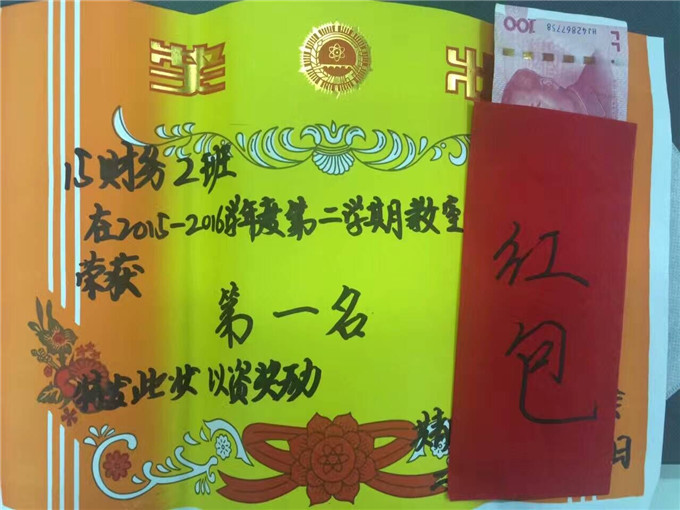 15财务2班
在2015-2016学年度第二学期教室
荣获
第一名
特发此状 以资奖励
红包
100
HJ42867758